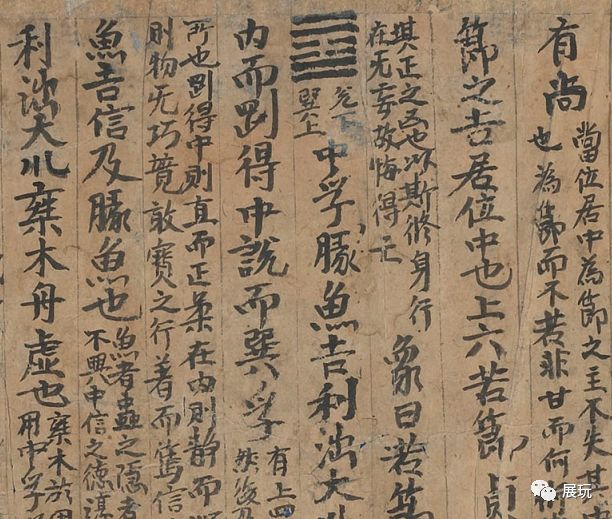 有尚
當位居中為節之主不失其
也為節而不若非甘而何
節之吉居位中也上六若節貞
堪正之凶也以斯脩身行
在无妄故悔得亡
象曰若節
䷼
兌下
巽上
中孚豚魚吉利涉大川
内而剛得中說而巽孚
有上四
然後乃
所也剛得中則直而正柔在内則静而順
則物无巧競敢實之行著而篤信
魚吉信及豚魚也
魚者蟲之隱者
不興中信之德淳
利涉大川乗木舟虛也
乗木於用
用中孚
展玩